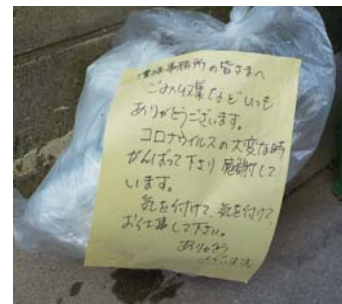 事務所の皆さまへ
ごみ収集などいつも
ありがとうございます。
コロナウイルスの大変な時
がんばって下さり感謝して
います。
気を付けて、気を付けて
お仕事して下さい。
ありがとう